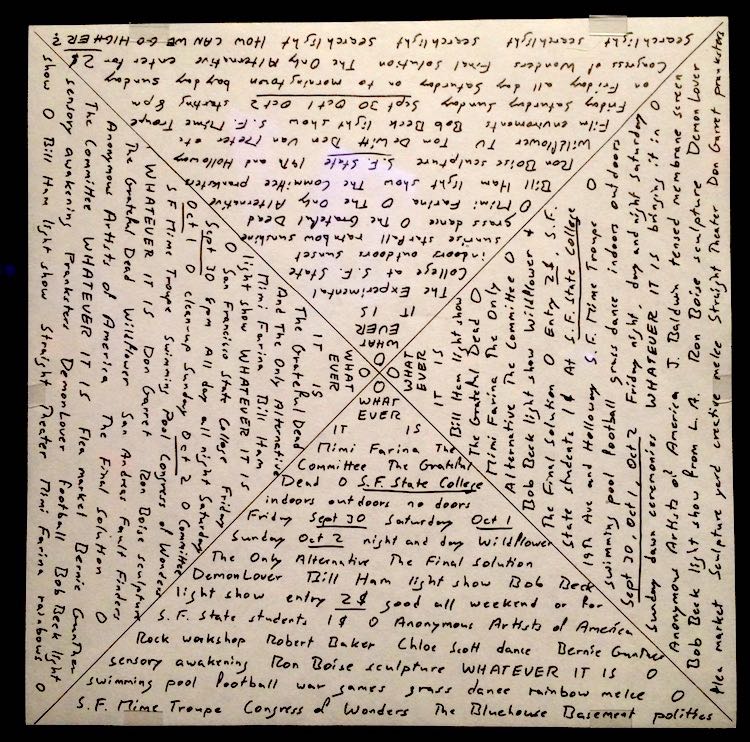 WHAT
EVER
IT IS
The Experimental
College at S.F. State
indoors outdoors sunset
sunrise starfall rainbow sunshine
grass dance O The Grateful Dead
O Mimi Farina O The Only Alternative
Bill Ham light show The Committee pranksters
Ron Boise sculpture S.F. State 19th and Holloway
Wildflower TV Tom DeWitt Den Van Meter etc
Film enviroments Bob Beck light show S.F. Mime Troupe
Friday Saturday Sunday Sept 30 Oct 1 Oct 2 starting 8 pm
on Friday all day Saturday on to morningtown bay day sunday
Congress of Wonders Final Solution The Only Alternative enter for 2$
searchlight searchlight searchlight searchlight HOW CAN WE GO HIGHER?
WHAT
EVER
IT IS
The Grateful Dead
And The Only Alternative
Mimi Farina Bill Ham
light show WHATEVER IT IS
O San Francisco State College Friday
Sept 30 8pm All day all night Saturday
Oct 1 O clean-up Sunday Oct 2 O Committee
SF Mime Troupe Swimming Pool Congress of Wonders
WHATEVER IT IS Don Garret Ron Boise sculpture
The Grateful Dead Wildflower San Andreas Fault Finders
Anonymous Artists of America The Final Solution O
The Committee WHATEVER IT IS flea market Bernie Gunther
sensory awakening Pranksters DemonLover football Bob Beck light
show O Bill Ham light show Straight Theater Mimi Farina rainbows O
WHAT
EVER
IT IS
Bill Ham light show
The Grateful Dead O
Mimi Farina The Only
Alternative The Committee O
Bob Beck light show Wildflower +
The Final Solution O Entry 2$, S.F.
State students 1$ At S.F. State College
19th Ave and Holloway S.F. Mime Troupe O
swimming pool football grass dance indoors outdoors
Sept 30, Oct 1, Oct 2 Friday night, day and night Saturday
Sunday dawn ceremonies WHATEVER IT IS bringing it in O
Anonymous Artists of America J. Baldwin tensed membrane screen
Bob Beck light show from L.A. Ron Boise sculpture Demon Lover
flea market sculpture yard creative melee Straight Theater Don Garret pranksters
WHAT
EVER
IT IS
Mimi Farina The
Committee The Grateful
Dead O S.F. State College
indoors outdoors no doors
Friday Sept 30 Saturday Oct 1
Sunday Oct 2 night and day Wildflower
The Only Alternative The Final Solution
DemonLover Bill Ham light show Bob Beck
light show entry 2$ good all weekend or for
S.F. State students 1$ O Anonymous Artists of America
Rock workshop Robert Baker Chloe Scott dance Bernie Gunther
sensory awakening Ron Boise sculpture WHATEVER IT IS O
swimming pool football war games grass dance rainbow melee O
S.F. Mime Troupe Congress of Wonders The Bluehouse Basement politics